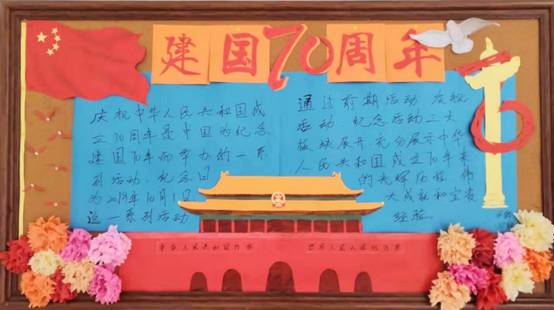 建国70周年
庆祝中华人民共和国成
立70周年是中国为纪念
建国70年而举办的一系
列活动，纪念日
为2019年10月1日
这一系列活动
通过前期活动、庆祝
活动、纪念活动三大
板块展开，充分展示中华
人民共和国成立70年来
的光辉历程、伟
大成就和宝贵
经验。
中华人民共和国万岁
世界人民大团结万岁